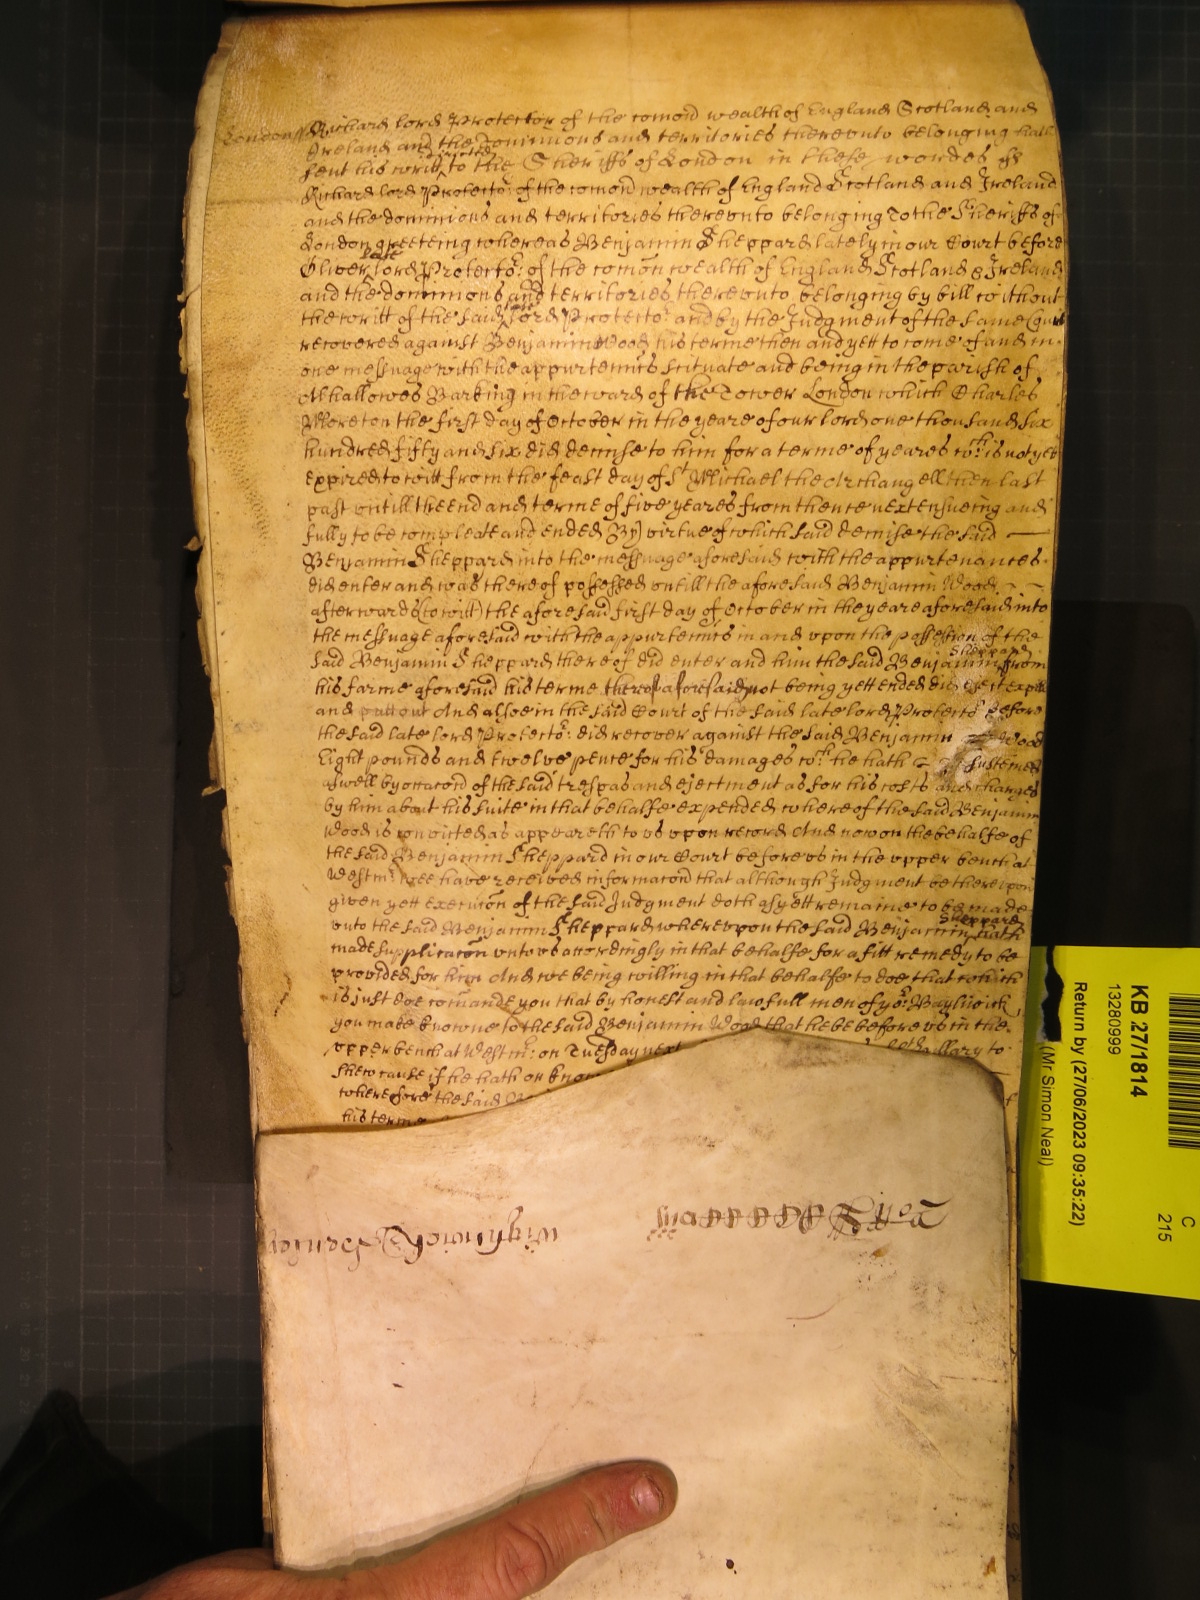 London ss Richard lord Protector of the comon wealth of England Scotland and
Ireland and the dominions and territories therevnto belonging hath
sent his writt directed to the Sheriffs of London in these wordes ss
Richard lord Protector of the comon wealth of England Scotland and Ireland
and the dominions and territories therevnto belonging To the Sheriffs of
London greeteing whereas Benjamin Sheppard lately in our Court before
Oliver late lord Protector: of the comon wealth of England Scotland & Ireland
and the dominions and territories therevnto belonging by bill without
the writt of the said late lord Protector and by the Judgment of the same Court
recovered against Benjamin Wood his terme then and yett to come of and in
one messuage with the appurtenncs scituate and being in the parish of
Alhallowes Barking in the ward of the Tower London which Charles
Moreton the first day of October in the yeare of our lord one thousand six
hundred fifty and six did demise to him for a terme of yeares wch is not yet
expired to witt from the feast day of St Michael the Archangell then last
past vntill the end and terme of five yeares from thence next ensueing and
fully to be compleate and ended By virtue of which said demise the said
Benjamin Sheppard into the messuage aforesaid with the appurtenances
did enter and was thereof possessed vntill the aforesaid Benjamin Wood
afterwards (to witt) the aforesaid first day of October in the yeare aforesaid into
the messuage aforesaid with the appurtenncs in and vpon the possession of the
said Benjamin Sheppard thereof did enter and him the said Benjamin Sheppard from
his farme aforesaid his terme thereof aforesaid not being yett ended did eiect expell
and putt out And alsoe in the said Court of the said late lord Protector before
the said late lord Protector: did recover against the said Benjamin Wood
Eight pounds and twelve pence for his damages wch he hath sustened
aswell by occacon of the said trespas and ejectment as for his costs and charges
by him about his suite in that behalfe expended whereof the said Benjamin
Wood is convicted as appeareth to vs vpon record And now on the behalfe of
the said Benjamin Sheppard in our Court before vs in the vpper bench at
Westmr: wee have received informacon that although Judgment be therevpon
given yett execucon of the said Judgment doth as yett remaine to be made
vnto the said Benjamin Sheppard wherevpon the said Benjamin Sheppard hath
made supplicacon vnto vs accordingly in that behalfe for a fitt remedy to be
provided for him And we being willing in that behalfe to doe that which
is just doe comande you that by honest and lawfull men of yor: Baylwick
you make knowne to the said Benjamin Wood that he be before vs in the
vpper bench at Westmr: on Tuesday next to
shew cause if he hath or know
wherefore the said
his terme
Wightwick
KB 27/1814
13280999
Return by (27/06/2023 09:35:22)
(Mr Simon Neal)
C
215